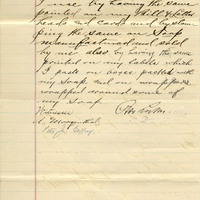 I use by having the same
printed on my Bill & Letter
heads and cards and by stam
ping the same on Soap
manufactured and sold
by me also by having the same
printed on my labels which
I paste on boxes packed with
my Soap and on wrappers
wrapped around some of
my Soap
Witnesses